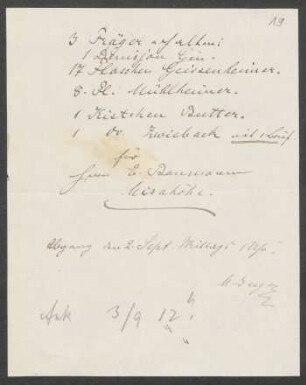 19
3 Träger erhalten:
1 Demijon Gin.
17 Flaschen Geissenheimer.
8. Fl. Mühlheimer.
1 Kistchen Butter.
1 do Zwieback
für
Herrn E. Baumann
Misahöhe.
Abgang am 2. Sept. Mittags
Ank 3/9 12 h